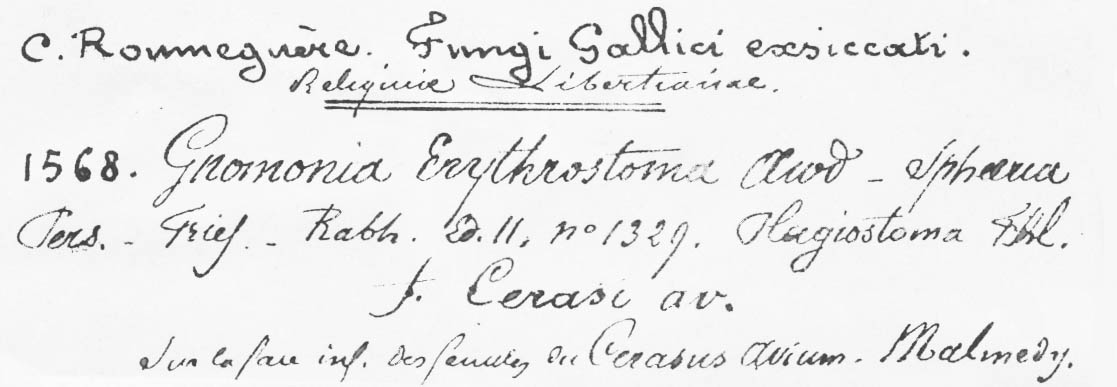 C. Roumeguère. Fungi Gallici exsiccati.
Reliquiæ Libertianae.
1568. Gnomonia Erythrostoma Awd - Sphæria
Pers. - Fries - Rabh. Ed. II, no 1329. Plagiostoma Fkl.
f. Cerasi av.
Sur la face inf. des feuilles du Cerasus avium. Malmedy.